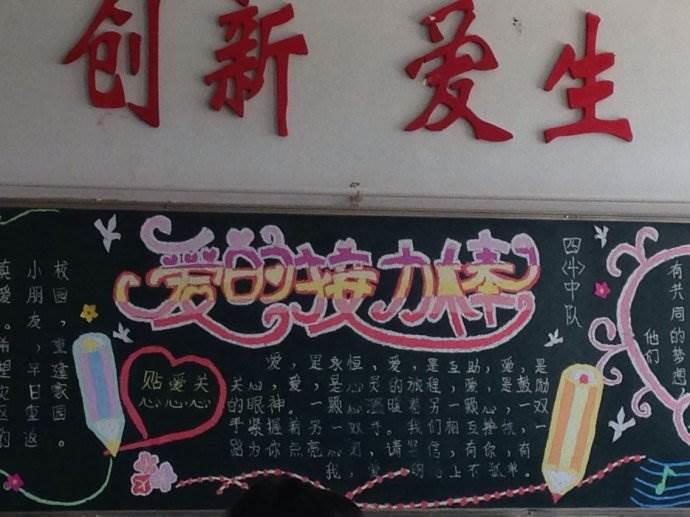 创新 爱生
爱的接力棒
四〈4〉中队
校园,重建家园。
小朋友,早日重返
贴 爱 关
心 心 心
爱,是永恒,爱,是互助,爱,是
关心,爱,是心灵的旅程,爱,是鼓励
的眼神。一颗心温暖着另一颗心,一双
手紧握着另一双手。我们相互搀扶,一
路为你点亮,请坚信,有你,有
我,爱上不孤单。
有共同
的梦想
他们